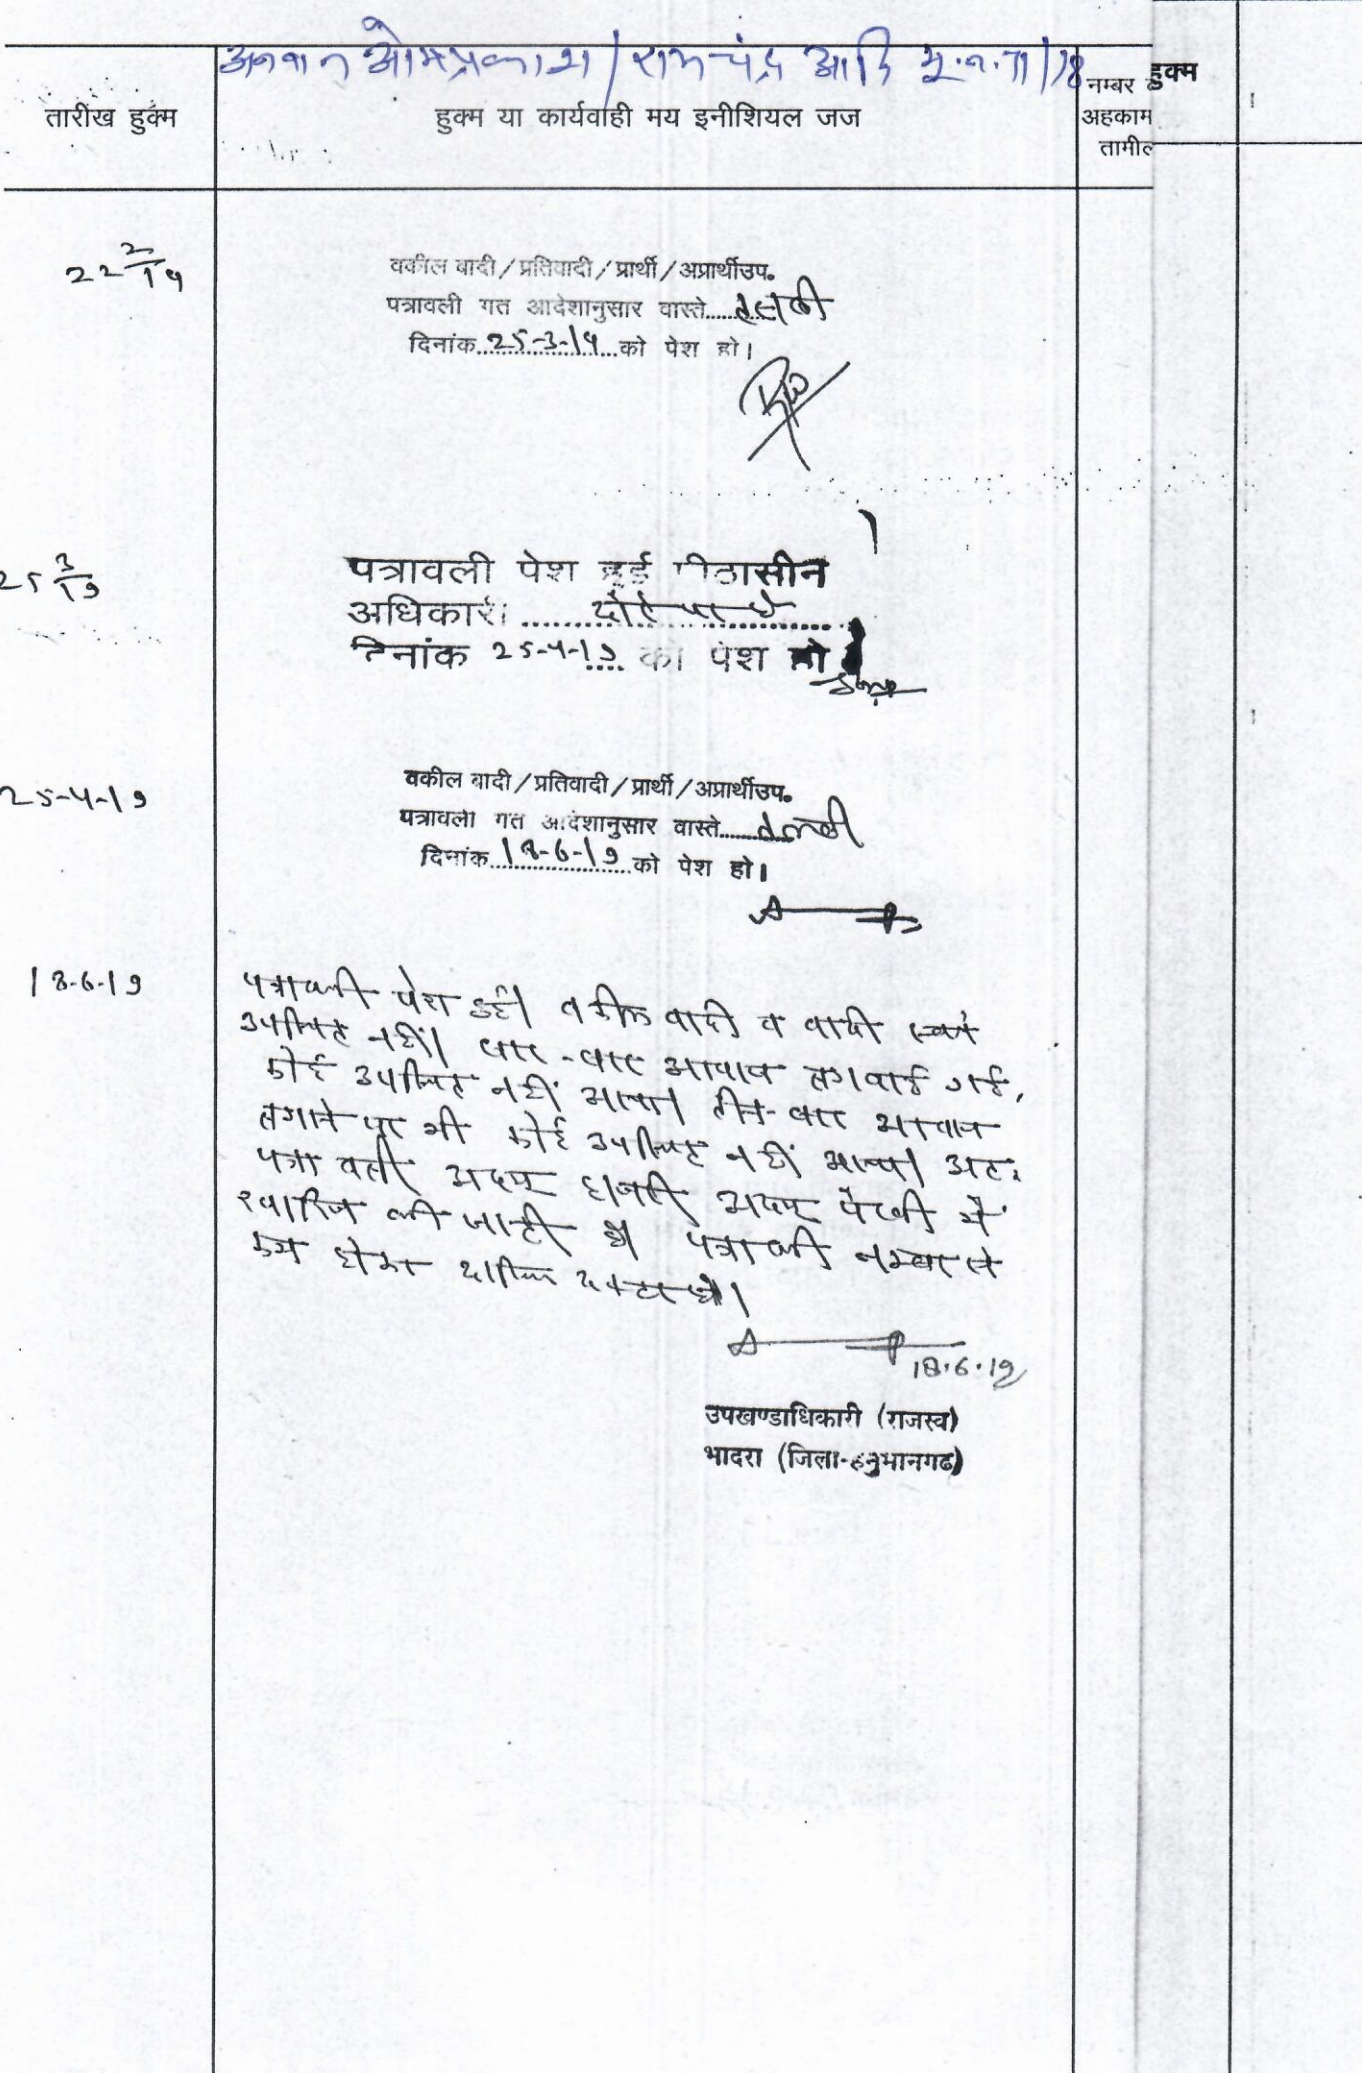 अनवान ओमप्रकाश / रामचंद्र आदि मु.न. 71/18
तारीख हुक्म
हुक्म या कार्यवाही मय इनीशियल जज
नम्बर
अहकाम
तामील
हुक्म
22 2/19
वकील वादी/प्रतिवादी/प्रार्थी/अप्रार्थीउप.
पत्रावली गत आदेशानुसार वास्ते......तलबी
दिनांक 25-3-19 को पेश हो।
25 3/19
पत्रावली पेश हुई पीठासीन
अधिकारी ......दौरे पर है
दिनांक 25-4-19 को पेश हो
25-4-19
वकील वादी/प्रतिवादी/प्रार्थी/अप्रार्थीउप.
पत्रावली गत आदेशानुसार वास्ते......तलबी
दिनांक 18-6-19 को पेश हो।
18-6-19
पत्रावली पेश हुई। वकील वादी व वादी स्वयं
उपस्थित नहीं। बार-बार आवाज लगवाई गई,
कोई उपस्थित नहीं आया। तीन बार आवाज
लगाने पर भी कोई उपस्थित नहीं आया। अतः
पत्रावली अदम हाजरी अदम पैरवी में
खारिज की जाती है। पत्रावली नम्बर से
कम होकर दाखिल दफ्तर हो।
18.6.19
उपखण्डाधिकारी (राजस्व)
भादरा (जिला-हनुमानगढ)